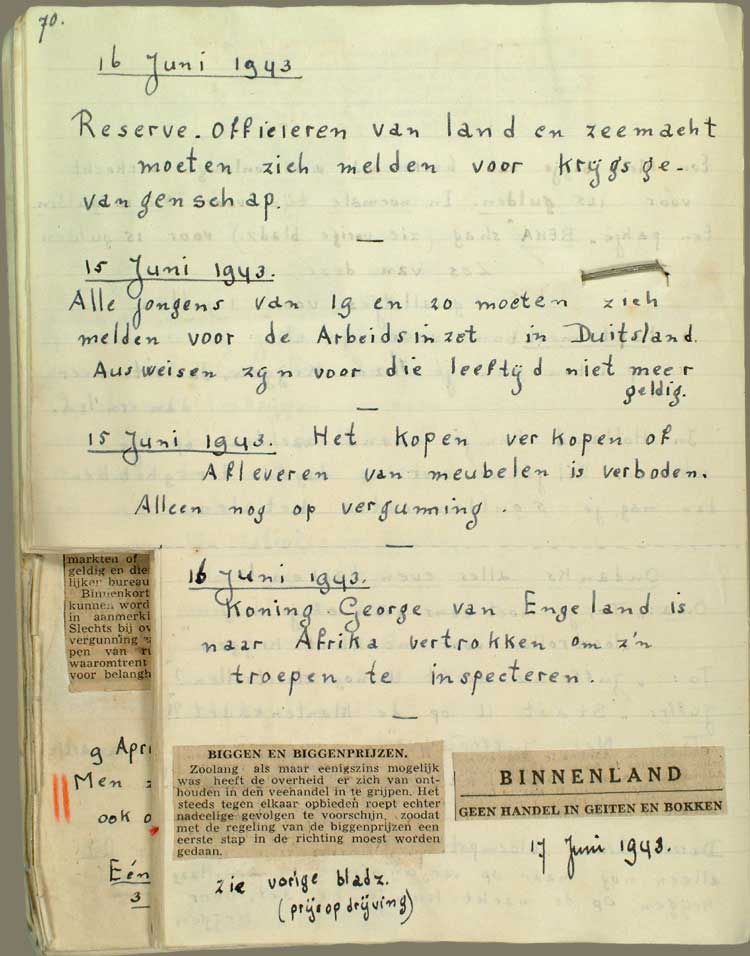 70.
16 Juni 1943
Reserve-Officieren van land en zeemacht
moeten zich melden voor krijgsge-
vangenschap.
—
15 Juni 1943.
Alle jongens van 19 en 20 moeten zich
melden voor de Arbeidsinzet in Duitsland.
Ausweisen zijn voor die leeftijd niet meer
geldig.
—
15 Juni 1943. Het kopen verkopen of
Afleveren van meubelen is verboden.
Alleen nog op vergunning.
—
16 Juni 1943.
Koning George van Engeland is
naar Afrika vertrokken om z'n
troepen te inspecteren.
—
markten of
geldig en die
lijker bureau
Binnenkort
kunnen word
in aanmerki
Slechts bij ov
vergunning
pen van
waaromtrent
voor belangh
9 Apri
Men
ook
Eén
3
BIGGEN EN BIGGENPRIJZEN.
Zoolang als maar eenigszins mogelijk
was heeft de overheid er zich van ont-
houden in den veehandel in te grijpen. Het
steeds tegen elkaar opbieden roept echter
nadeelige gevolgen te voorschijn, zoodat
met de regeling van de biggenprijzen een
eerste stap in de richting moest worden
gedaan.
zie vorige bladz.
(prijsopdrijving)
BINNENLAND
GEEN HANDEL IN GEITEN EN BOKKEN
17 Juni 1943.